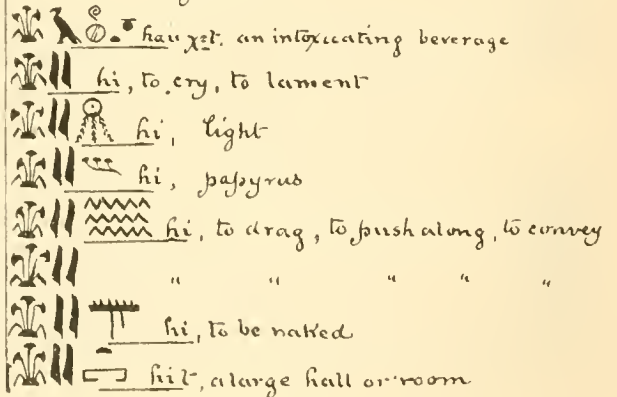 𓇉𓄿𓏲𓐍𓏏 hau χet. an intoxicating beverage
𓇉𓇌 hi, to cry, to lament
𓇉𓇌𓇶 hi, light
𓇉𓇌 hi, papyrus
𓇉𓇌𓈗 hi, to drag, to push along, to convey
𓇉𓇌 " " " " "
𓇉𓇌 hi, to be naked
𓇉𓇌𓏏𓉐 hit, a large hall or room